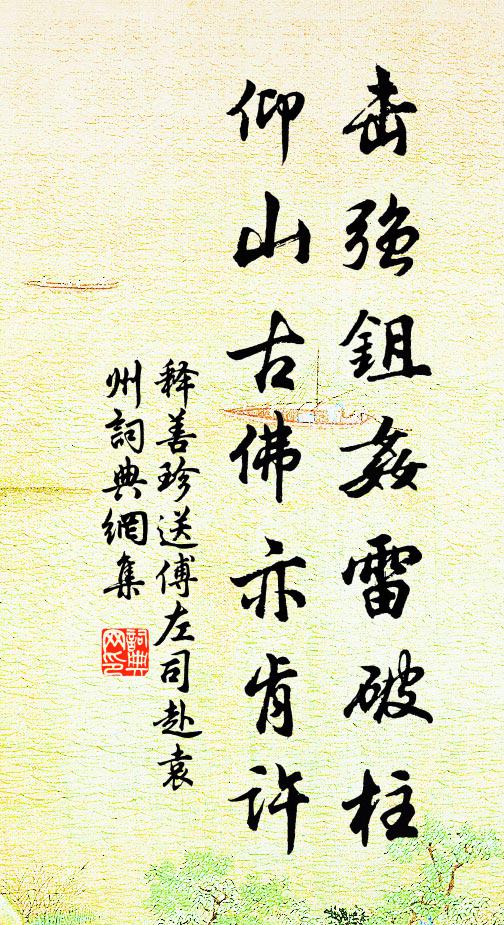 击強鉏姦雷破柱
仰山古佛亦肯许
释善珍送傅左司赴袁
州詞典網集
詞典网印